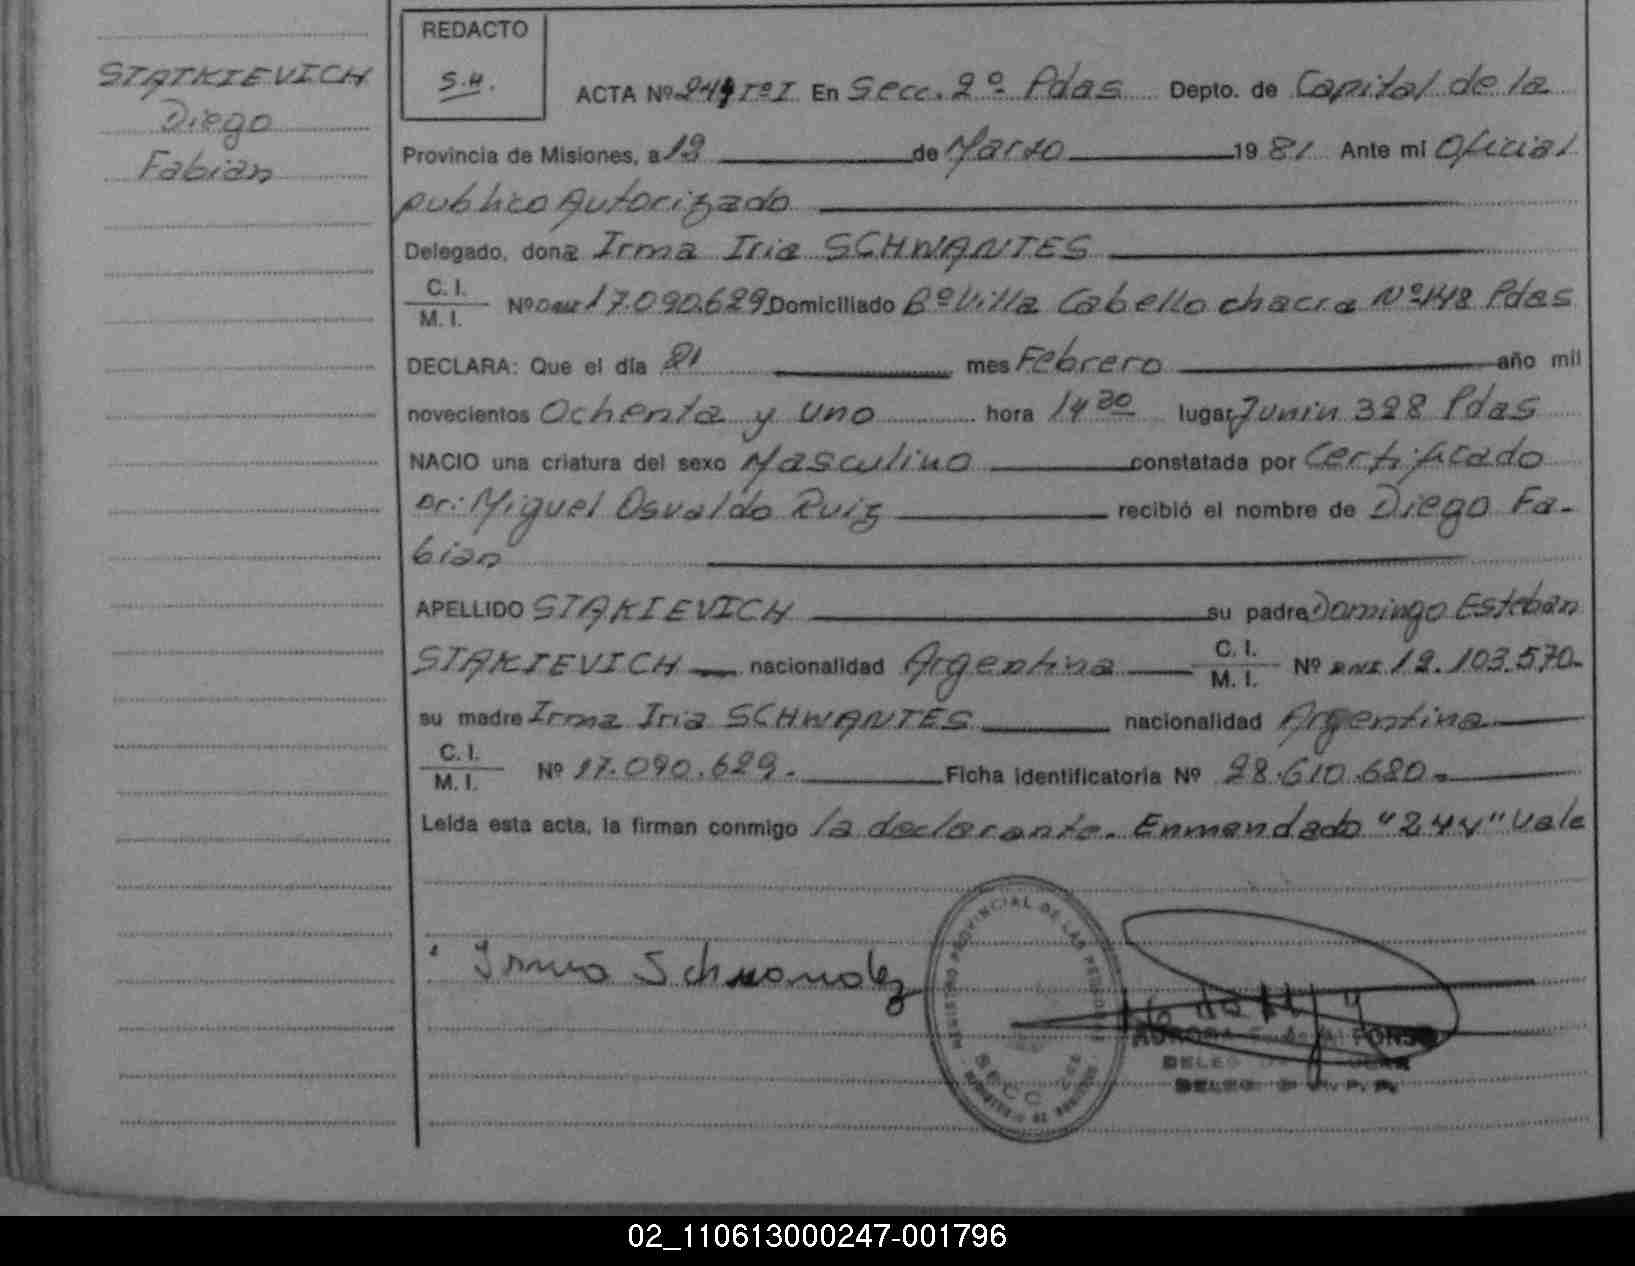 STATKIEVICH
Diego
Fabian
REDACTO
S.H.
ACTA Nº 244 Tº I En Secc. 2º Pdas Depto. de Capital de la
Provincia de Misiones, a 19 de Marzo 1981 Ante mi Oficial
publico Autorizado
Delegado, dona Irma Iria SCHWANTES
C. I.
M. I. Nº DNI 17.090.629 Domiciliado Bº Villa Cabello chacra Nº 148 Pdas
DECLARA: Que el día 21 mes Febrero año mil
novecientos Ochenta y uno hora 14 30 lugar Junin 328 Pdas
NACIO una criatura del sexo Masculino constatada por Certificado
Dr: Miguel Osvaldo Ruiz recibió el nombre de Diego Fa-
bian
APELLIDO STAKIEVICH su padre Domingo Esteban
STAKIEVICH nacionalidad Argentina C. I.
M. I. Nº DNI 12.103.570.
su madre Irma Iria SCHWANTES nacionalidad Argentina
C. I.
M. I. Nº 17.090.629. Ficha identificatoria Nº 28.610.620.
Leída esta acta, la firman conmigo la declarante. Enmendado "244" Vale
Irma Schwandez
REGISTRO PROVINCIAL DE LAS PERSONAS
SECC
02_110613000247-001796